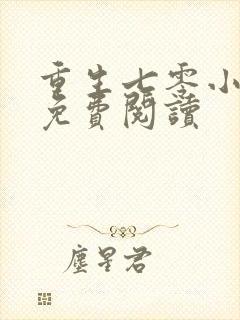 重生七零小
免費閱讀
塵星君